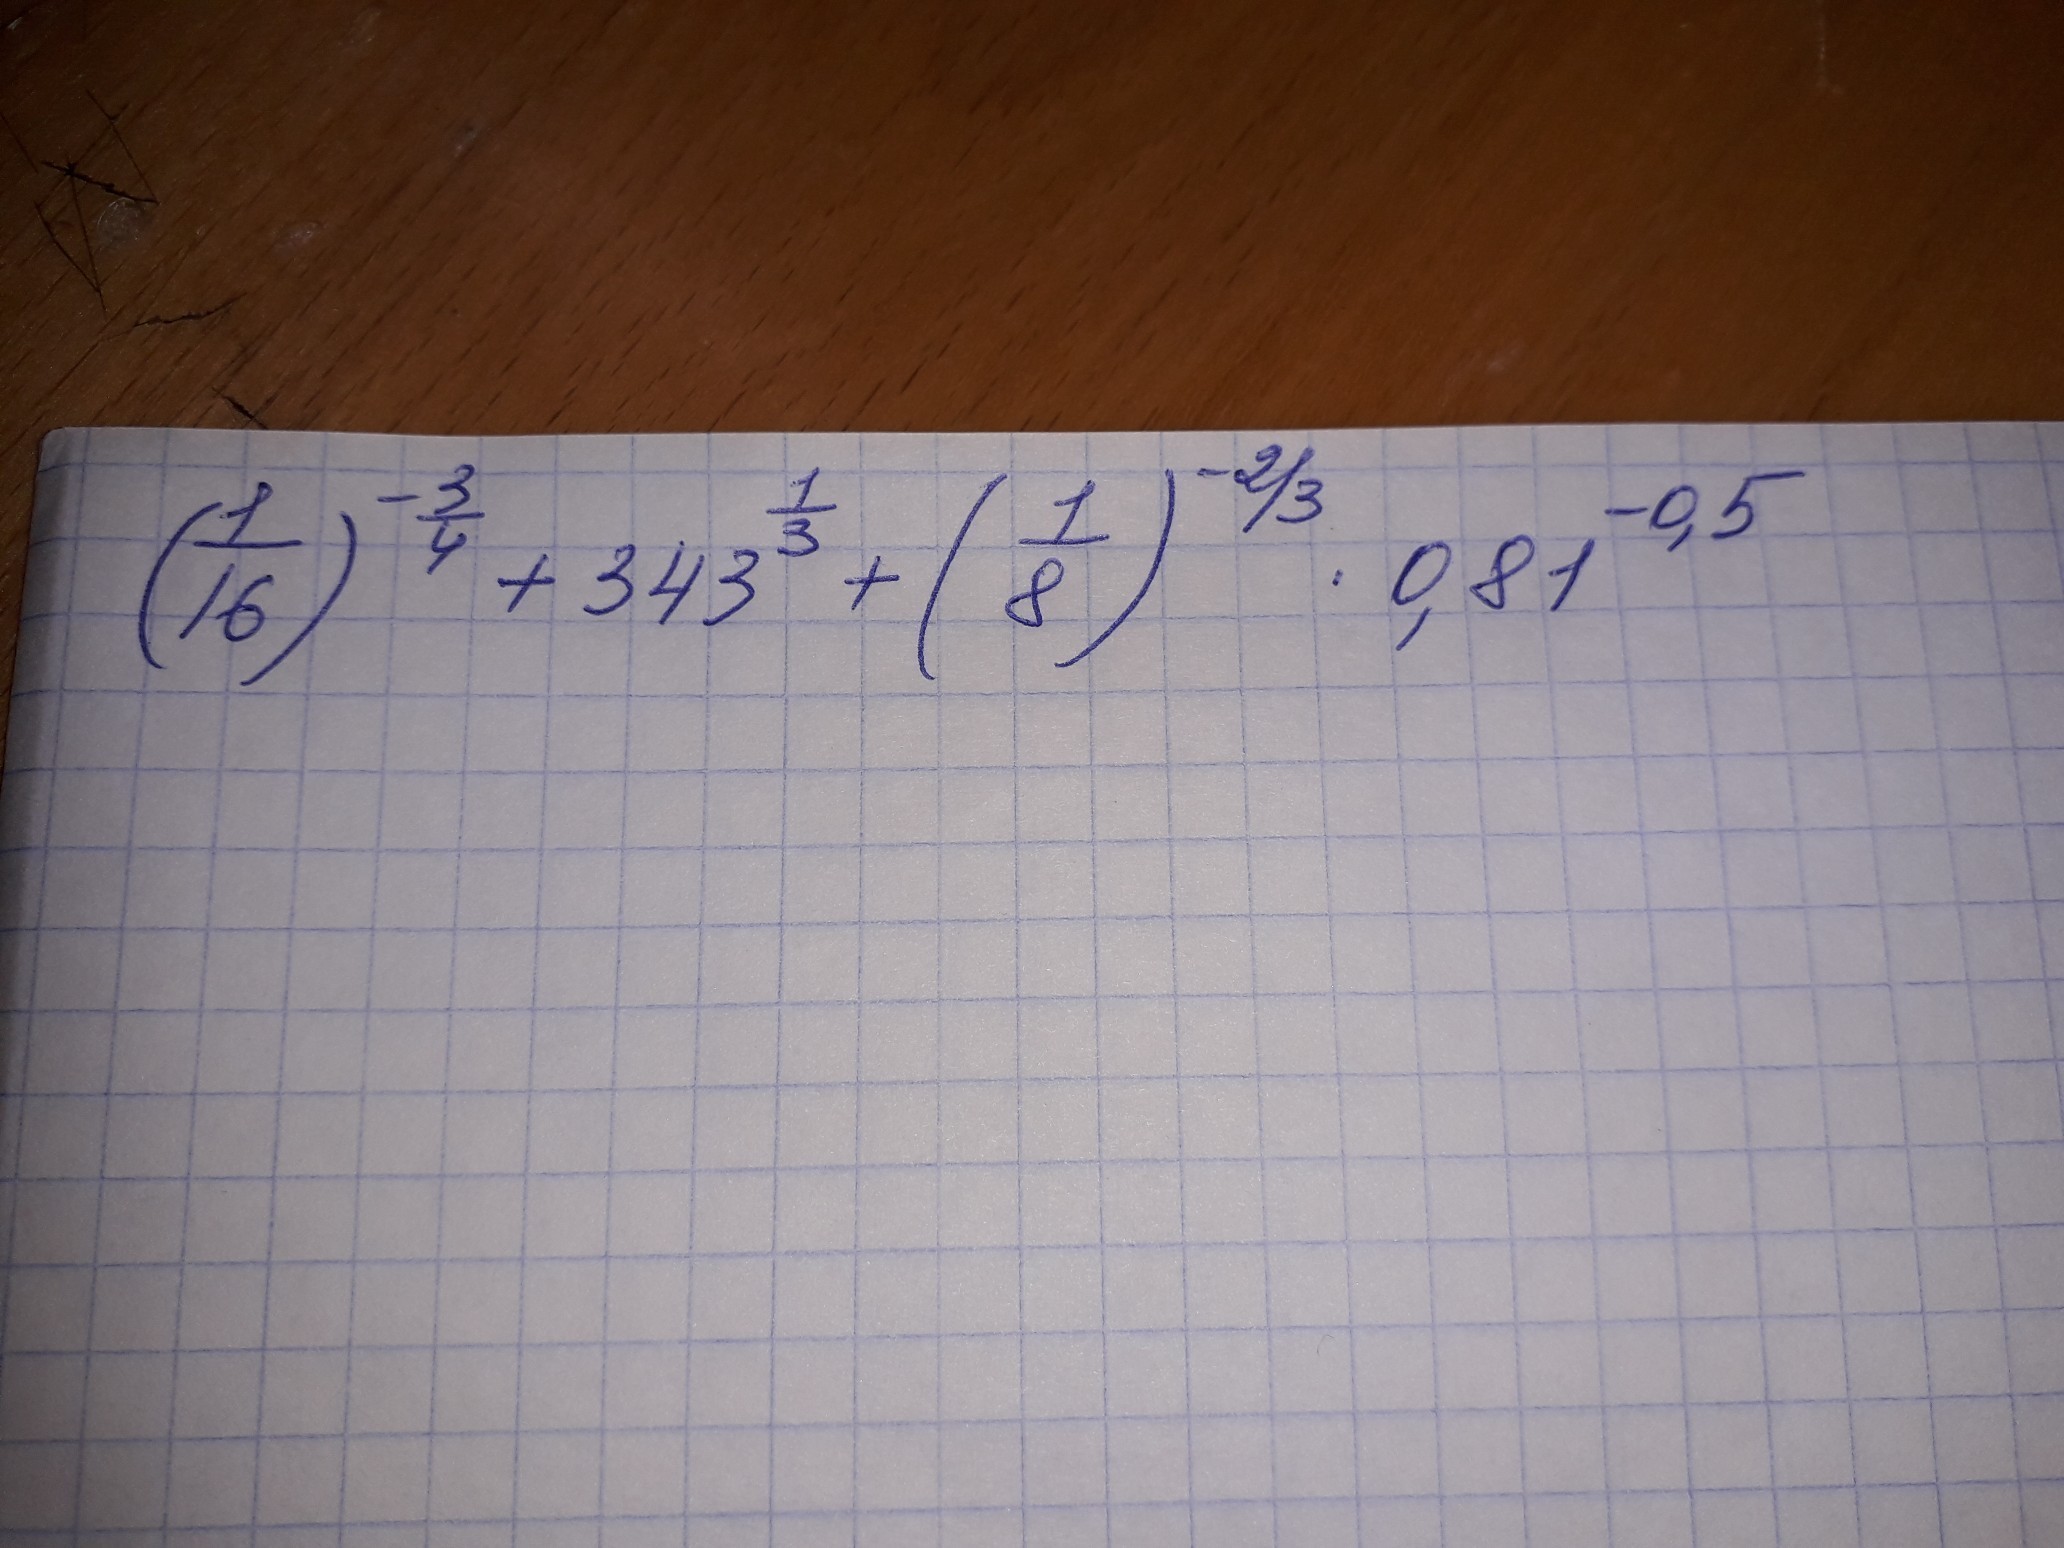 (1/16)^(-3/4) + 343^(1/3) + (1/8)^(-2/3) · 0,81^(-0,5)